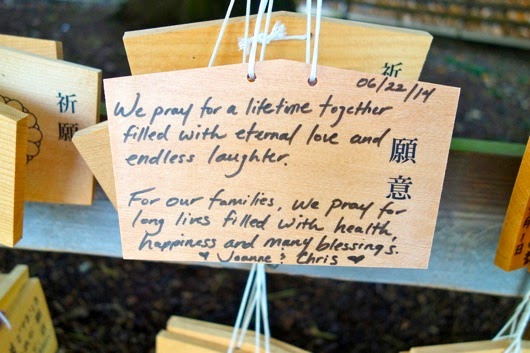 06/22/14
We pray for a lifetime together
filled with eternal love and
endless laughter.
For our families, we pray for
long lives filled with health,
happiness and many blessing's.
♥ Joanne & Chris ♥
願意
祈
祈願